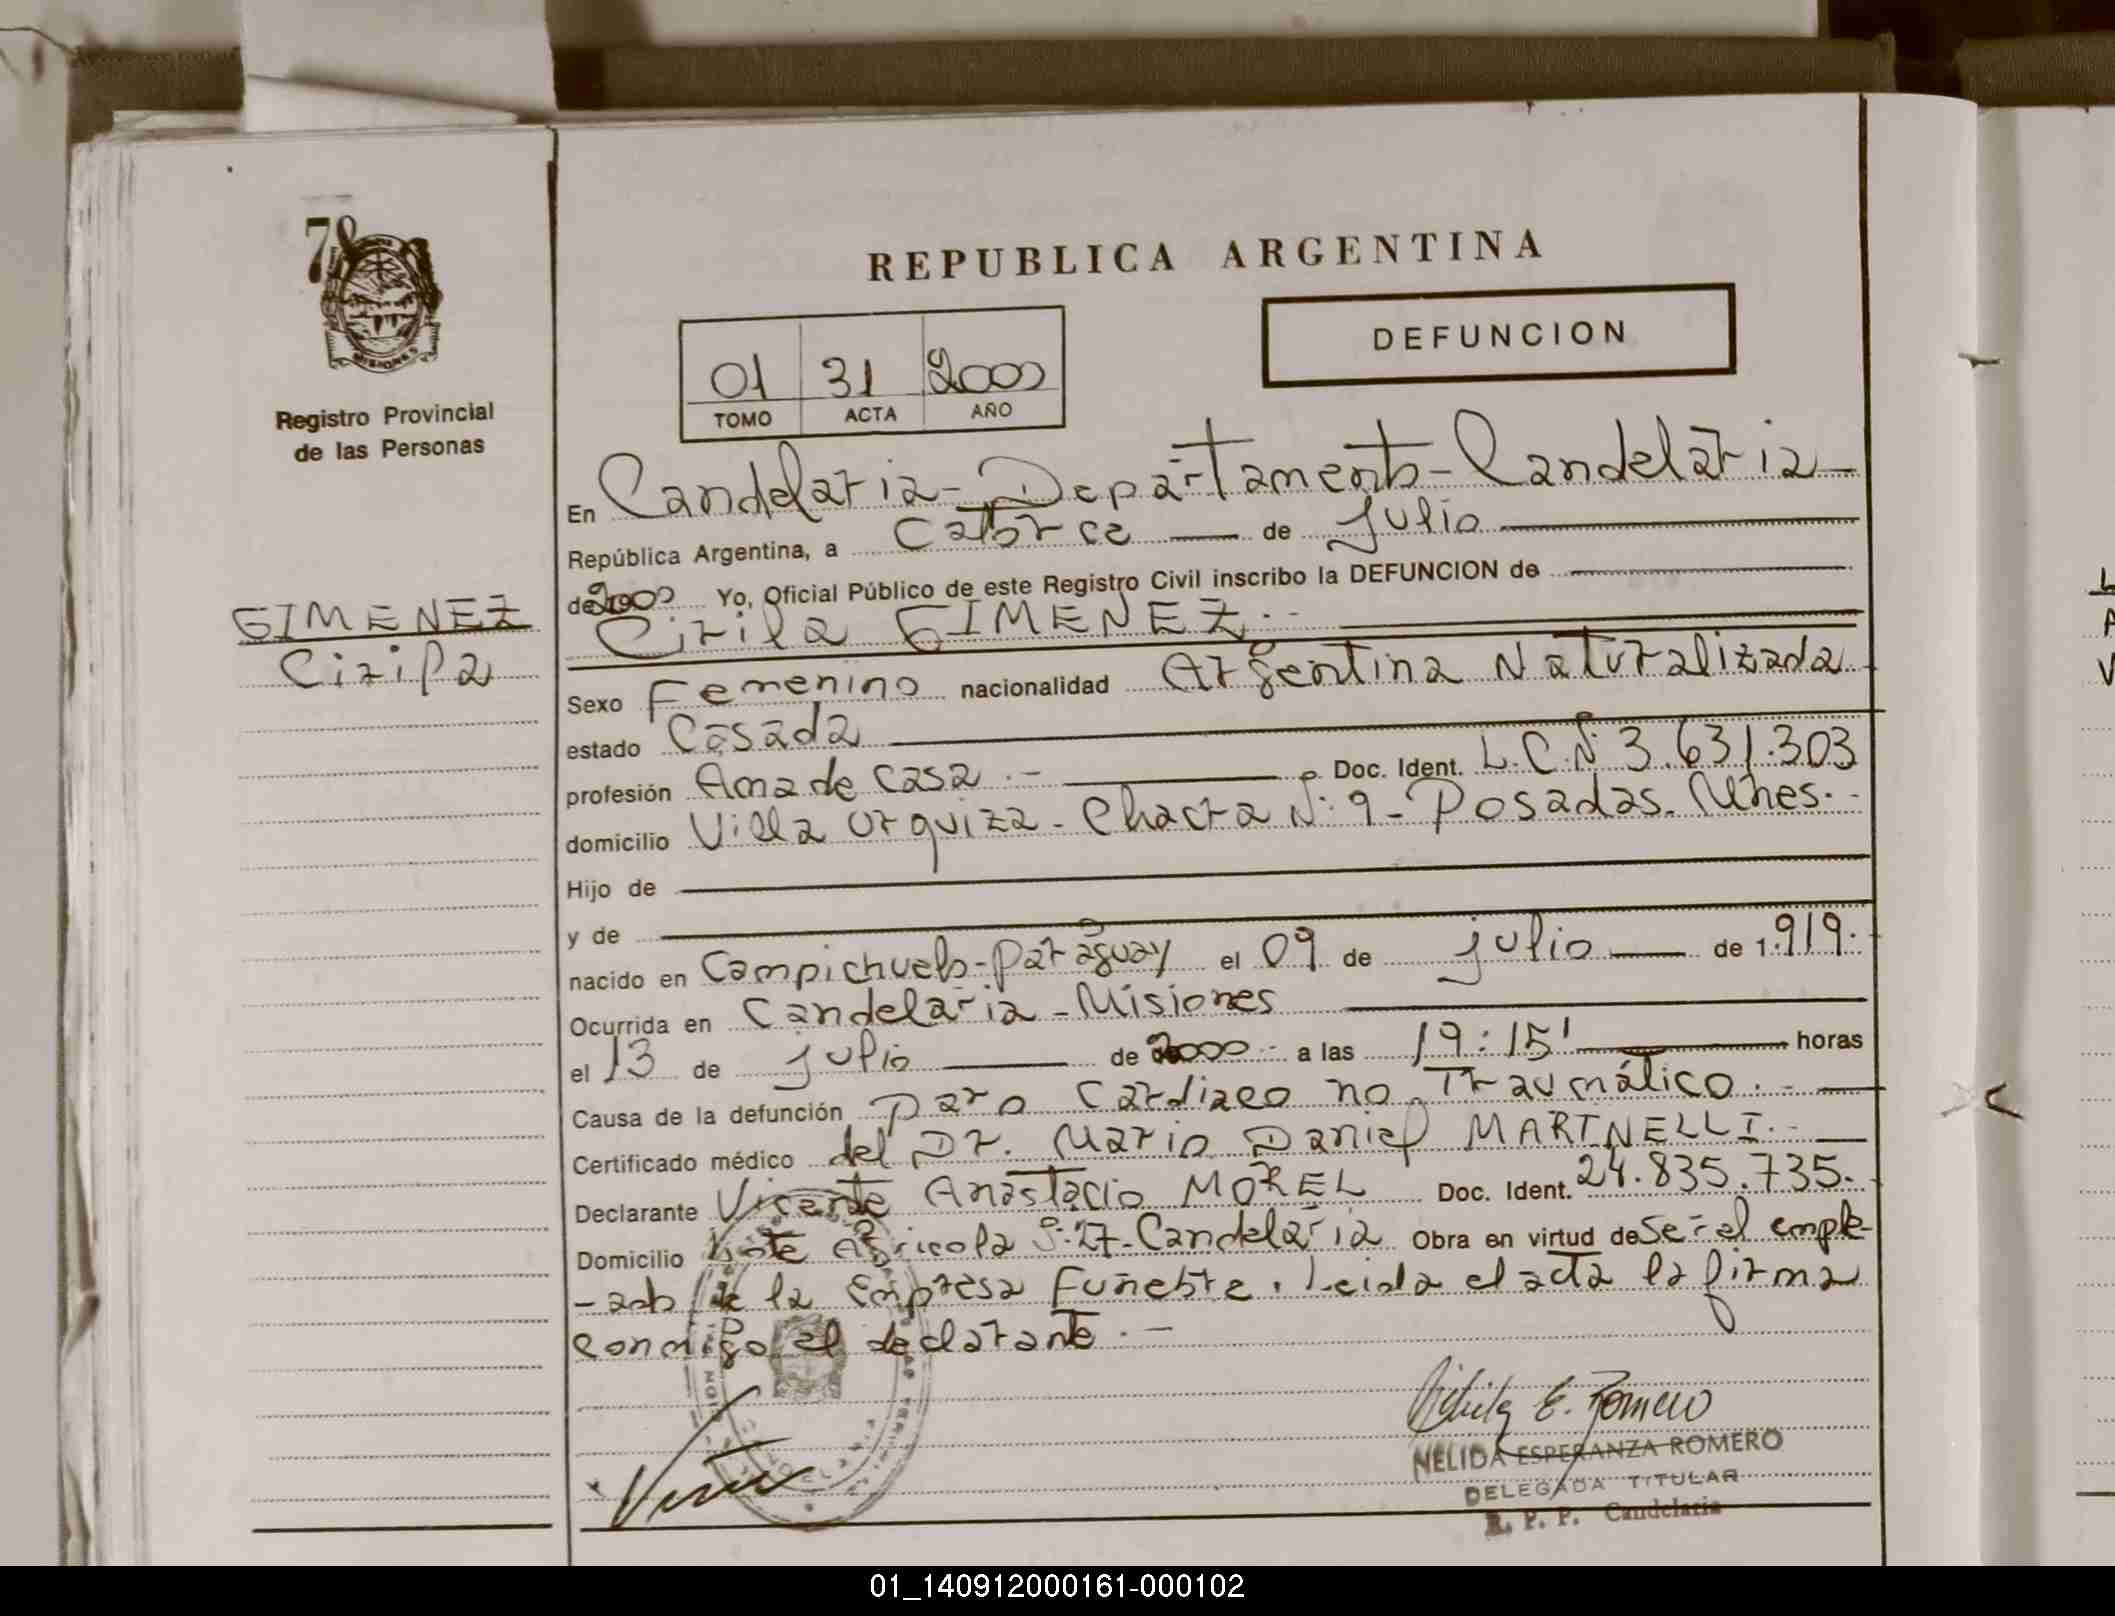 78
MISIONES
Registro Provincial
de las Personas
GIMENEZ
Cirila
REPUBLICA ARGENTINA
DEFUNCION
01 31 2000
TOMO ACTA AÑO
En Candelaria - Departamento - Candelaria
República Argentina, a Catorce de Julio
de 2000 Yo, Oficial Público de este Registro Civil inscribo la DEFUNCION de
Cirila GIMENEZ.-
Sexo Femenino nacionalidad Argentina Naturalizada
estado Casada
profesión Ama de casa.- Doc. Ident. L.C.Nº 3.631.303
domicilio Villa Urquiza - Chacra Nº 9 - Posadas. Mnes.-
Hijo de
y de
nacido en Campichuelo - Paraguay el 09 de julio de 1.919.
Ocurrida en Candelaria - Misiones
el 13 de julio de 2000.- a las 19:15' horas
Causa de la defunción paro cardiaco no Traumático.-
Certificado médico del Dr. Mario Daniel MARTNELLI.-
Declarante Vicente Anastacio MOREL Doc. Ident. 24.835.735.
Domicilio Lote Agricola S:27 - Candelaria Obra en virtud de ser el emple-
-ado de la Empresa Funebre. Leida el acta la firma
conmigo el declarante.-
E. Romero
NELIDA ESPERANZA ROMERO
DELEGADA TITULAR
R. P. P. Candelaria
01_140912000161-000102